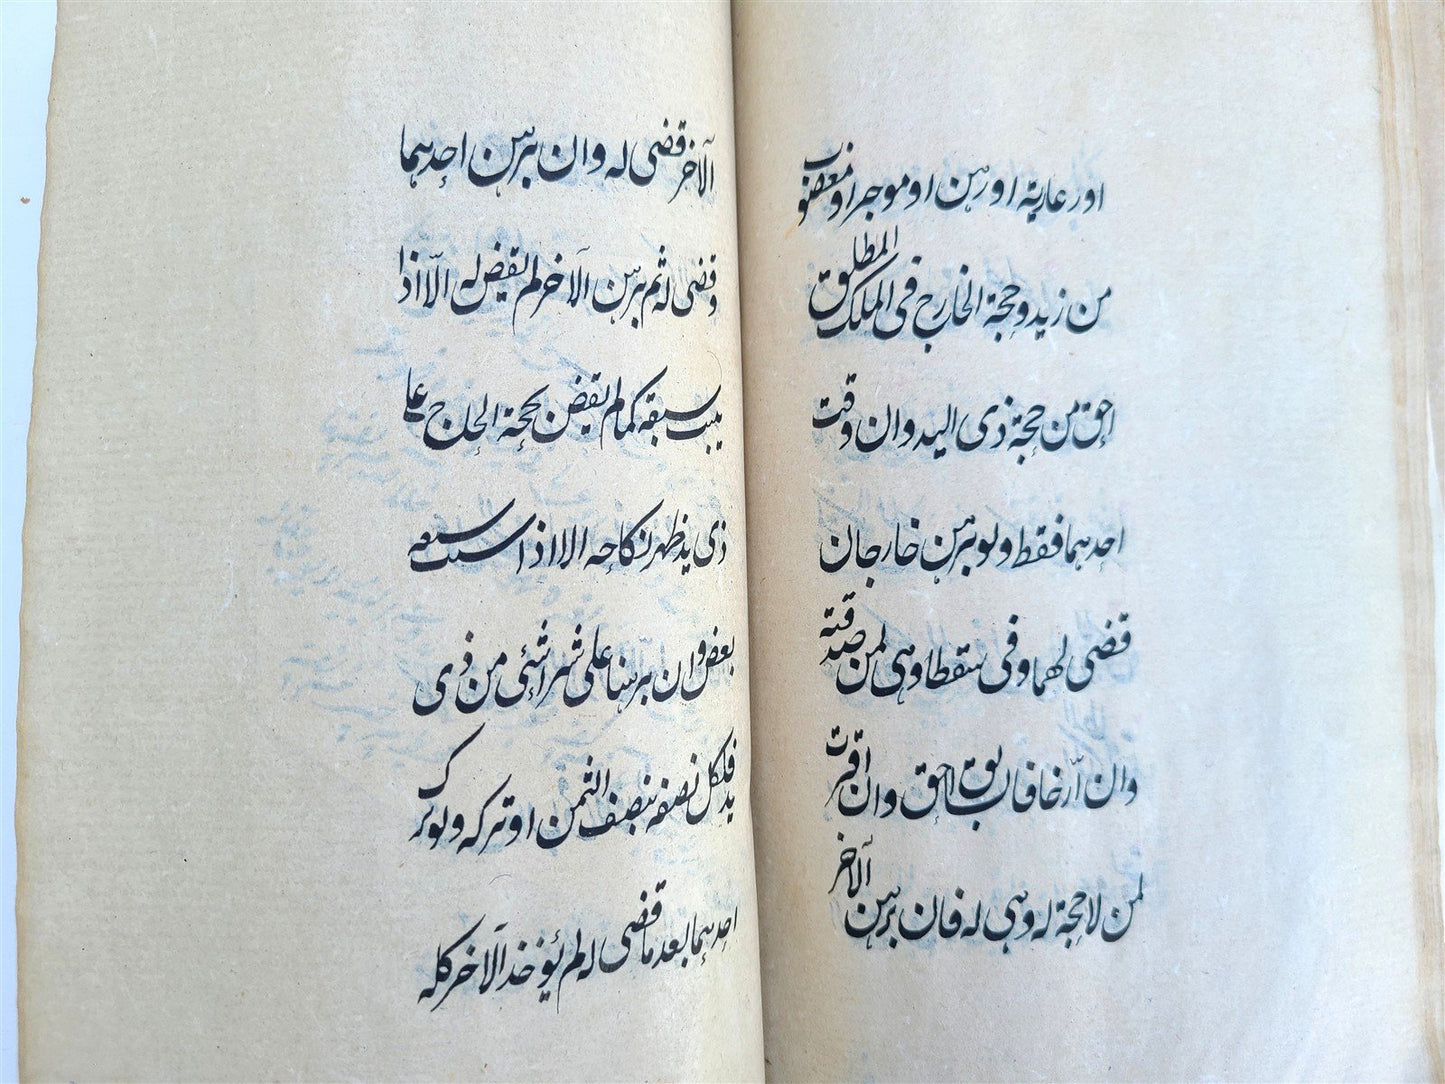 اور عارية او رهن او موجر او مغصوب
من زيد وحجة الخارج فى الملك المطلق
احق من حجة ذى اليد وان وقت
احدهما فقط ولو برهن خارجان
قضى لهما وفى سقطا وهى لمن صدقته
وان ارخا فالسابق احق وان اقرت
لمن لا حجة له وهى له فان برهن الآخر
الآخر قضى له وان برهن احدهما
وقضى له ثم برهن الآخر لم يقض له الّا اذا
يبت سبقه كما لم يقض بحجة الخارج على
ذى يد ظهر نكاحه الا اذا سبقه
بعض وان برهنا على شرا شئى من ذى
يد فلكل نصفه بنصف الثمن او تركه ولو ترك
احدهما بعد ما قضى له لم يؤخذ الآخر كله